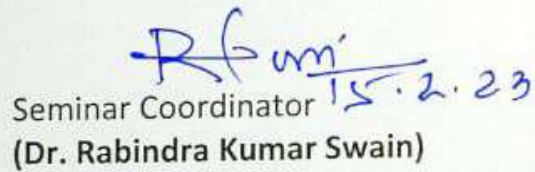 15.2.23
Seminar Coordinator
(Dr. Rabindra Kumar Swain)